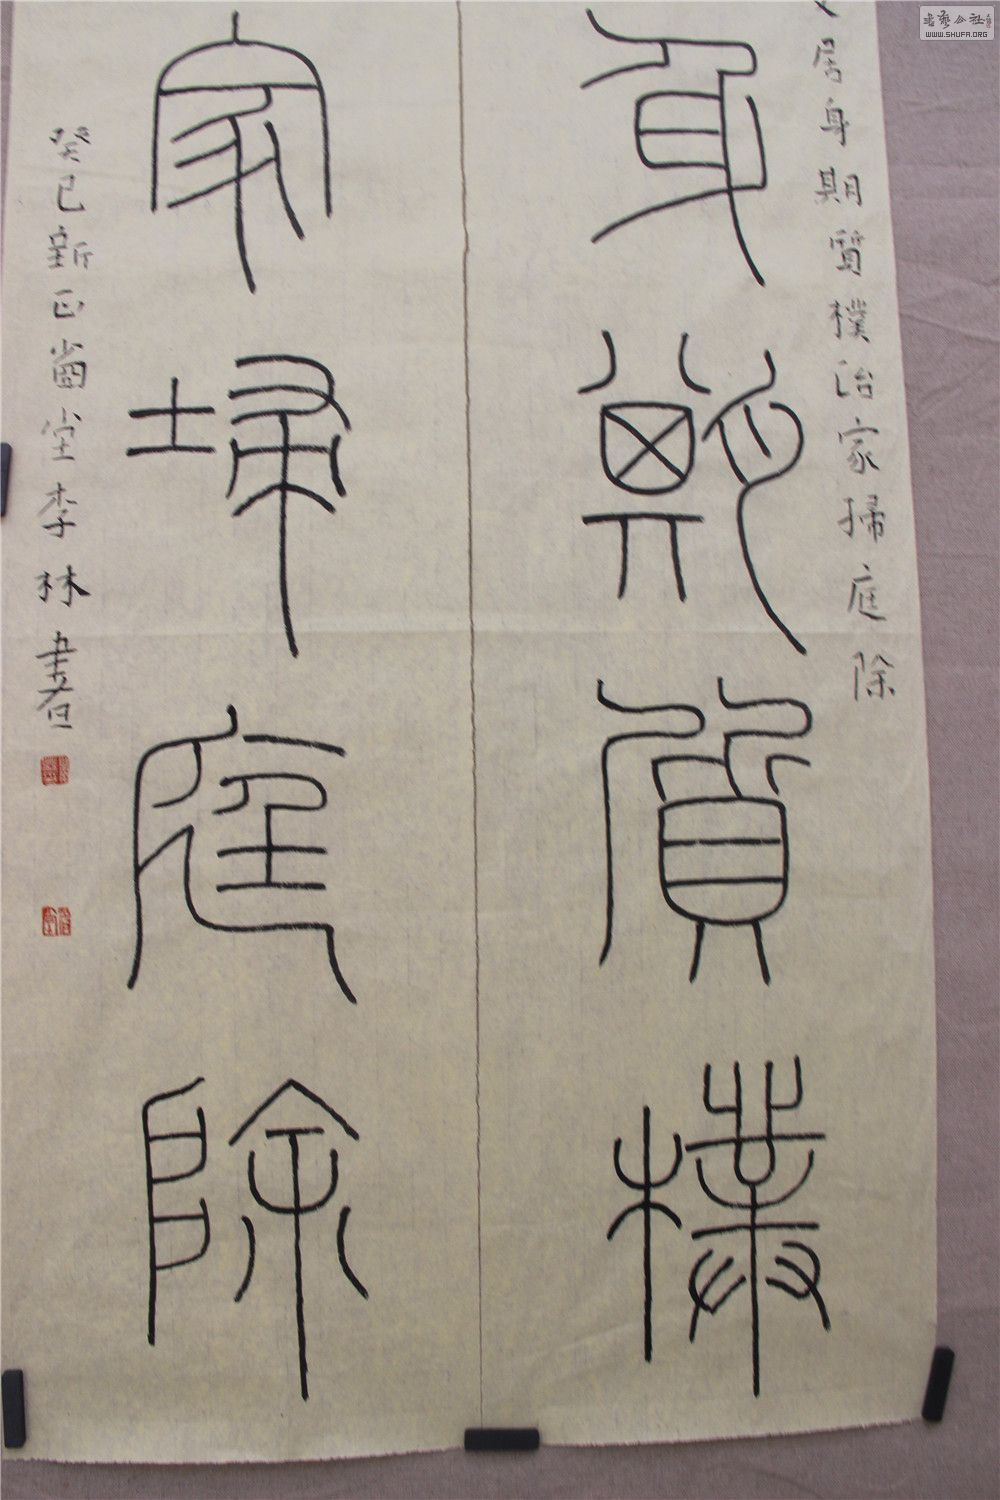 居身期質樸治家掃庭除
身期質樸
家埽庭除
癸巳新正
堂李林書
WWW.SHUFA.ORG